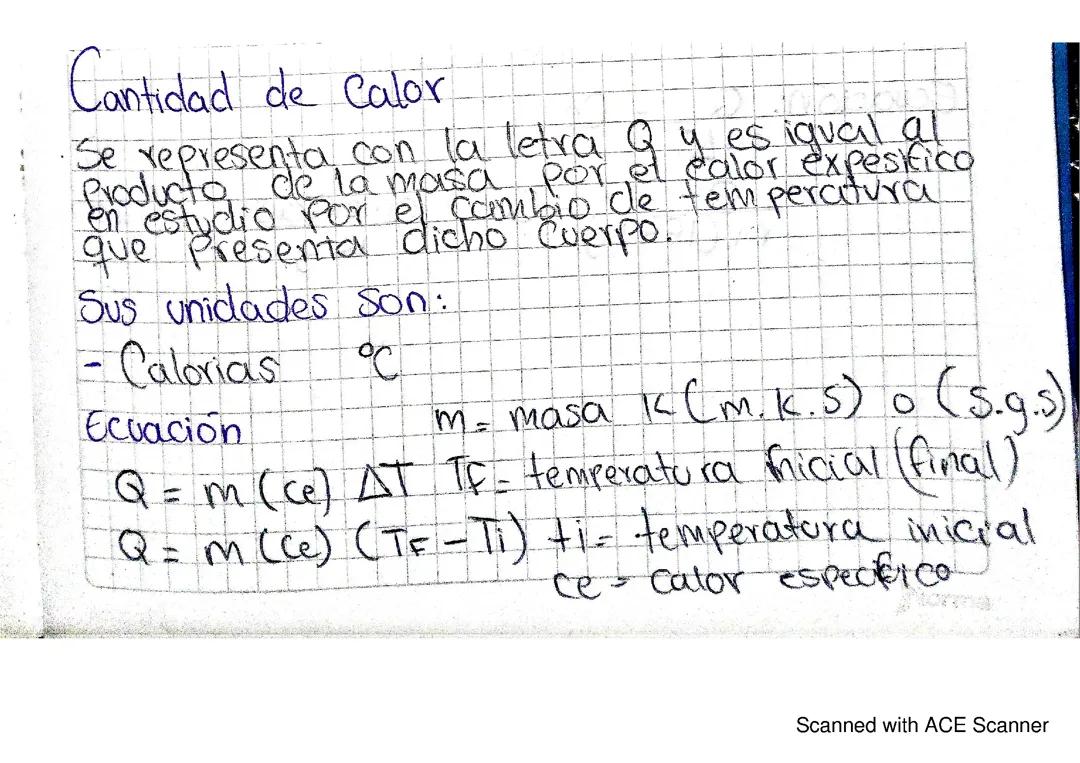 Cantidad de Calor
Se representa con la letra Q y es igual al
Producto de la masa por el calor expesifico
en estudio por el cambio de temperatura
que Presenta dicho Cuerpo.
Sus unidades son:
- Calorias °C
Ecuación m = masa K (m.k.s) o (s.g.s)
Q = m (ce) ΔT TF = temperatura inicial (final)
Q = m (ce) (TF - Ti) ti = temperatura inicial
ce = calor especifico
Norma
Scanned with ACE Scanner